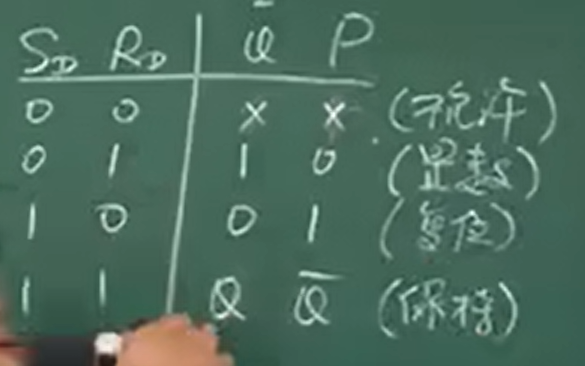 S_D R_D Q P
0 0 × × (不允许)
0 1 1 0 (置数)
1 0 0 1 (复位)
1 1 Q Q̅ (保持)